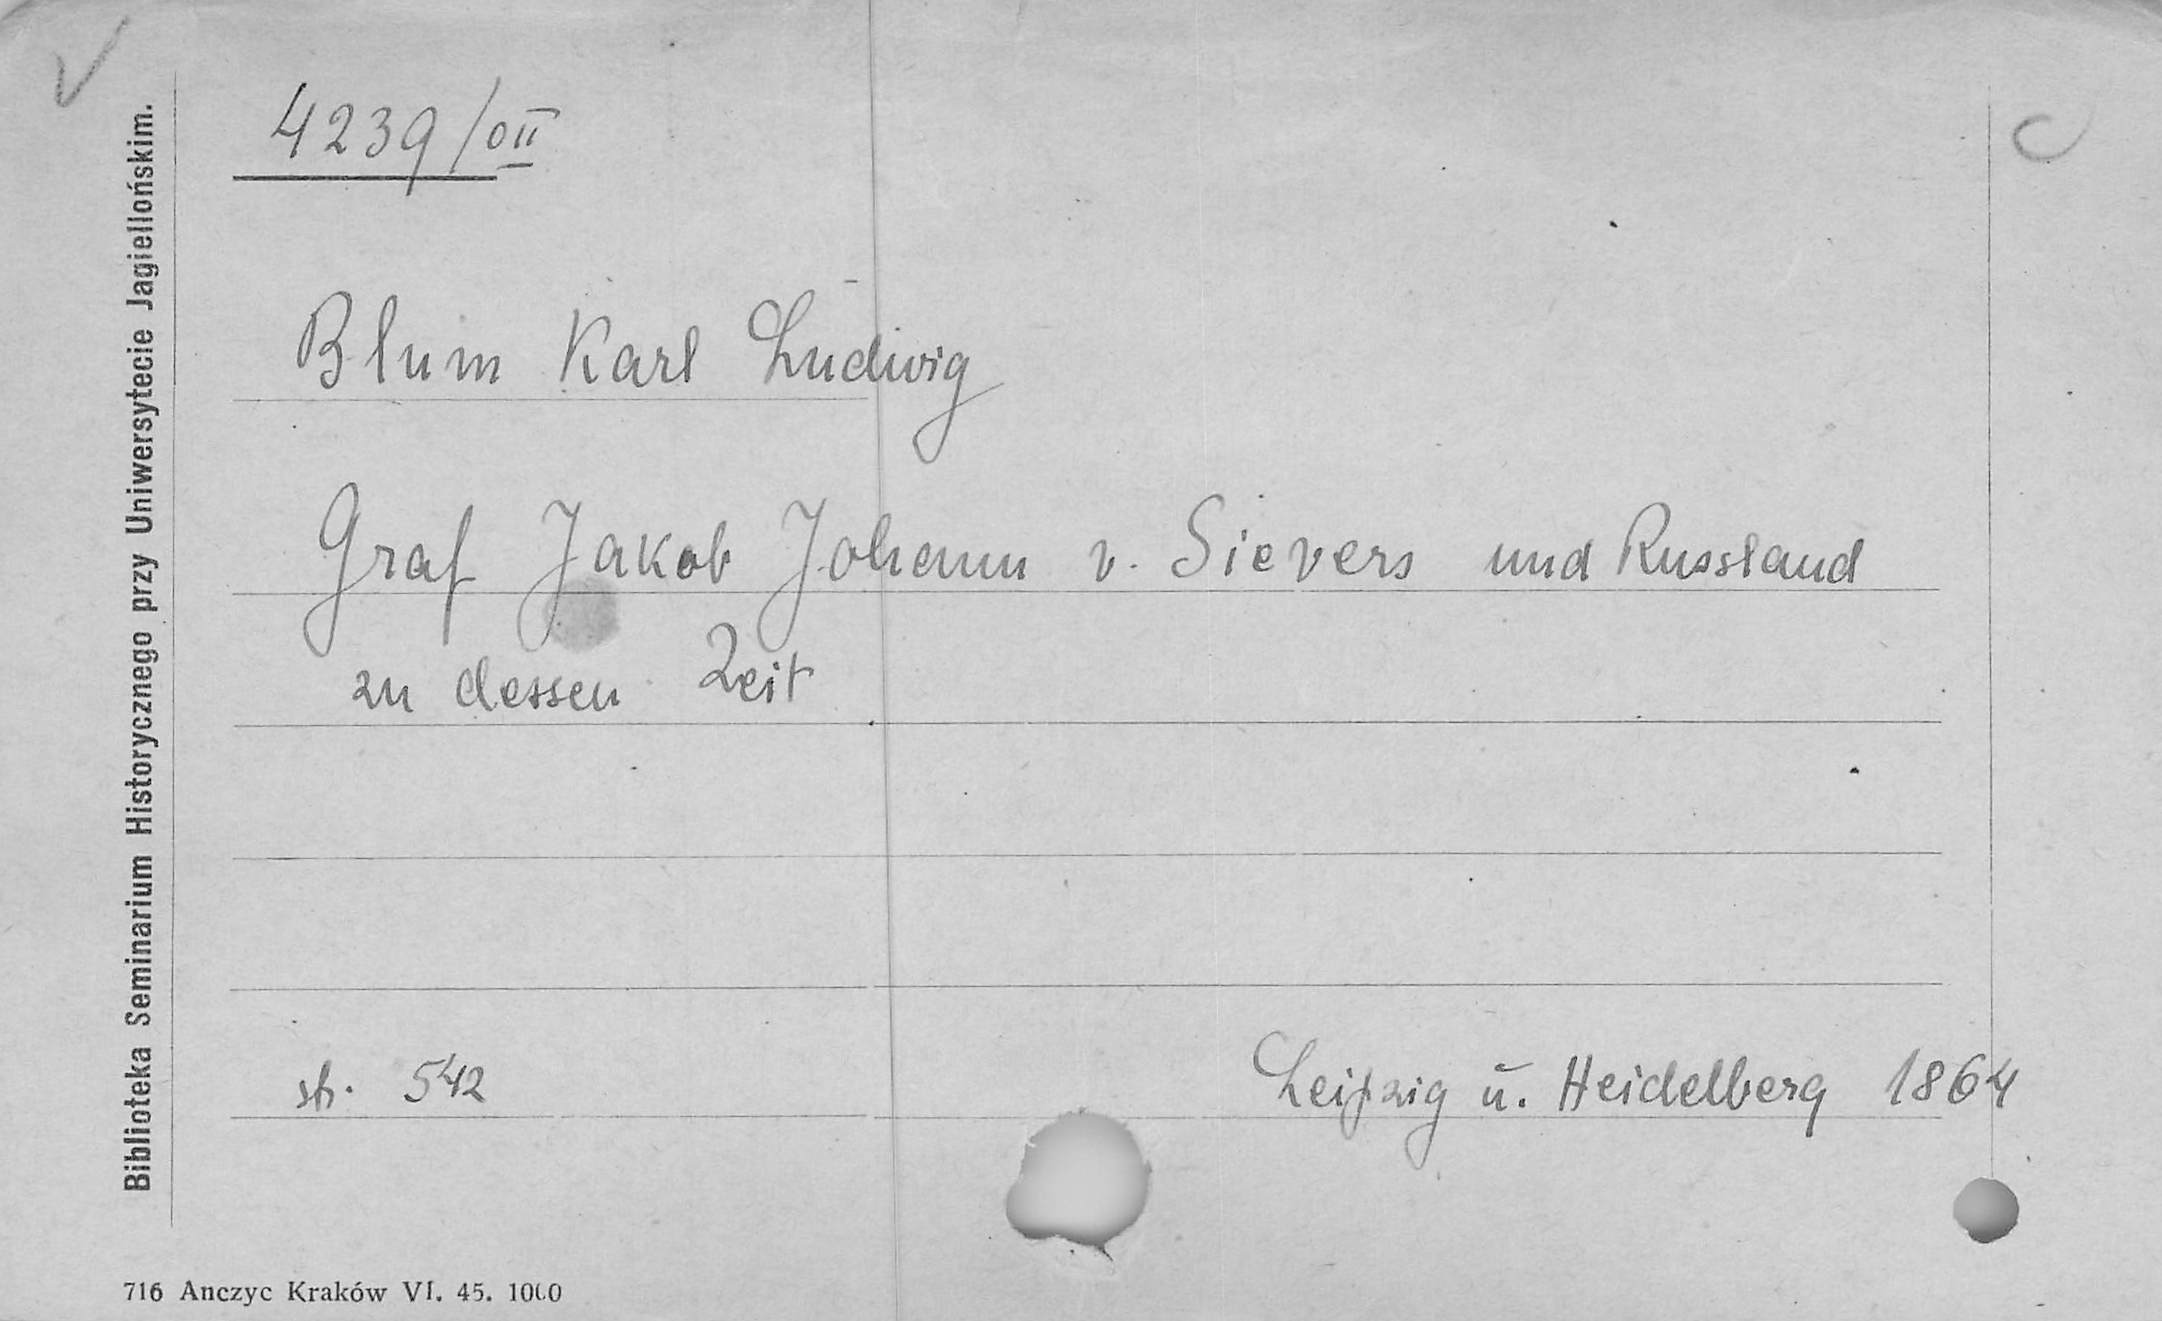 4239/0II
Blum Karl Ludwig
Graf Jakob Johann v. Sievers und Russland
zu dessen Zeit
str. 542
Leipzig u. Heidelberg 1864
Biblioteka Seminarium Historycznego przy Uniwersytecie Jagiellońskim.
716 Anczyc Kraków VI. 45. 1000